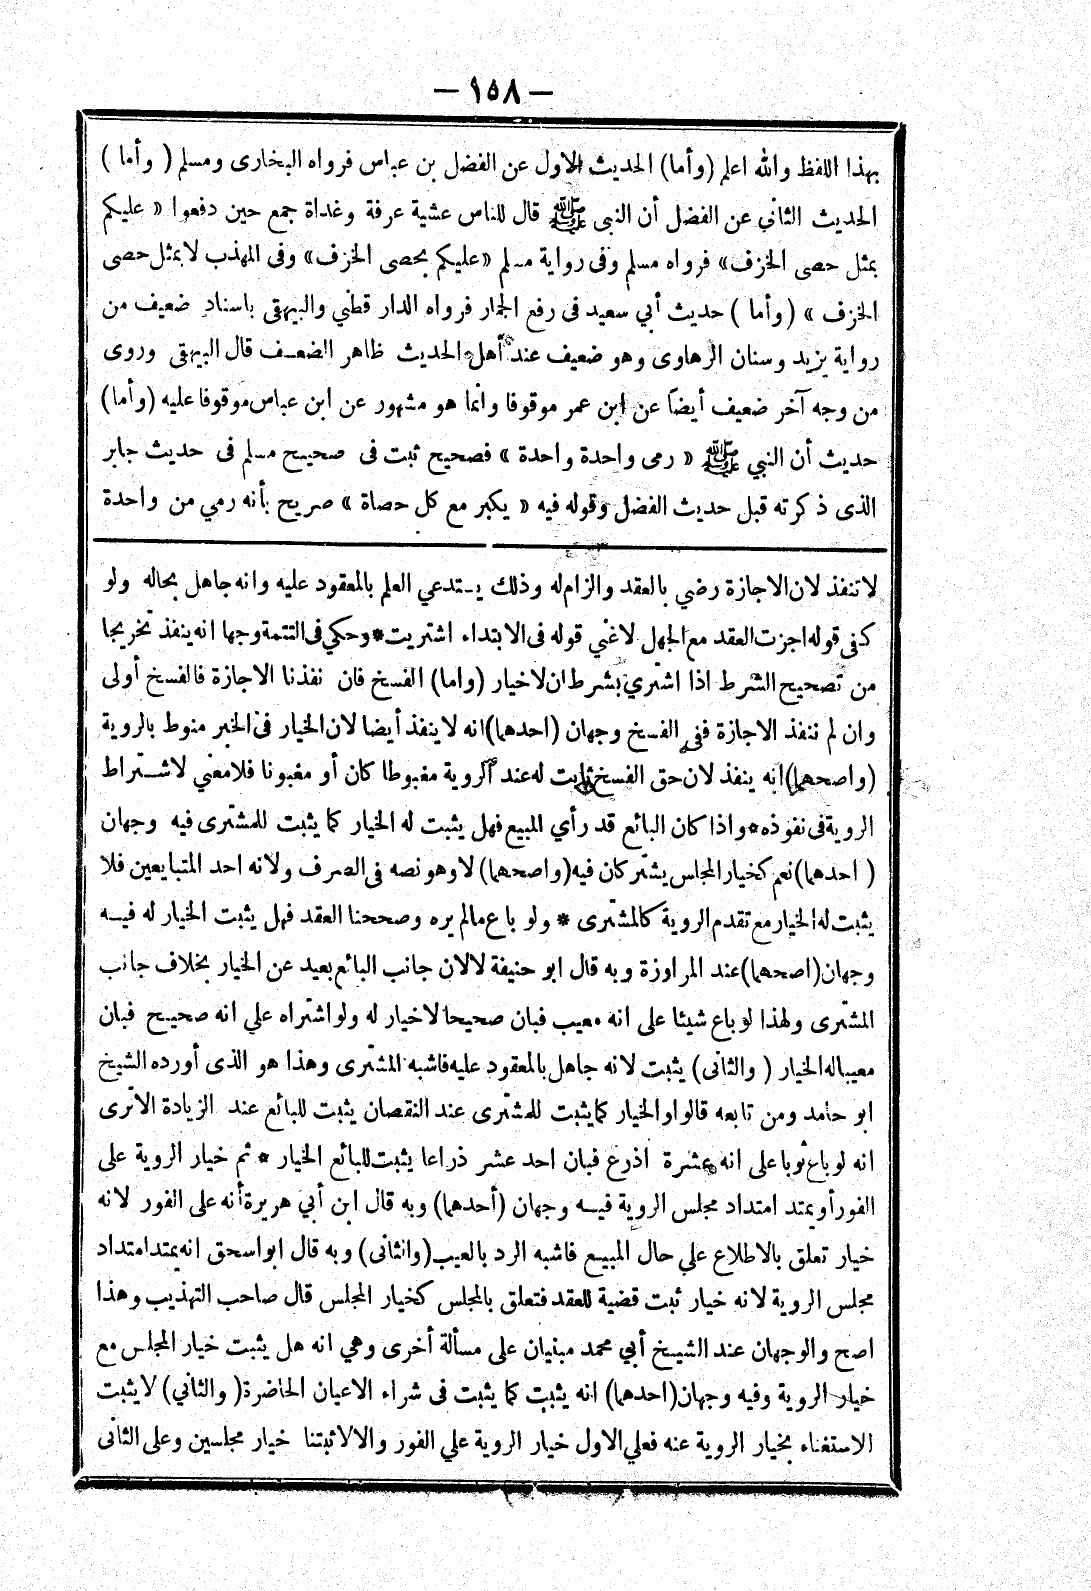 — ١٥٨ —
بهذا اللفظ والله اعلم (وأما) الحديث الاول عن الفضل بن عباس فرواه البخارى ومسلم ( وأما )
الحديث الثاني عن الفضل أن النبى ﷺ قال للناس عشية عرفة وغداة جمع حين دفعوا « عليكم
بمثل حصى الخزف» فرواه مسلم وفى رواية مسلم «عليكم بحصى الخزف» وفى المهذب لابمثل حصى
الخزف » (وأما ) حديث أبي سعيد فى رفع الجمار فرواه الدار قطني والبيهقى باسناد ضعيف من
رواية يزيد وسنان الرهاوى وهو ضعيف عند أهل الحديث ظاهر الضعف قال البيهقى وروى
من وجه آخر ضعيف أيضا عن ابن عمر موقوفا وانما هو مشهور عن ابن عباس موقوفا عليه (وأما)
حديث أن النبي ﷺ « رمى واحدة واحدة » فصحيح ثبت فى صحيح مسلم فى حديث جابر
الذى ذكرته قبل حديث الفضل وقوله فيه « يكبر مع كل حصاة » صريح بأنه رمي من واحدة
لا تنفذ لان الاجازة رضي بالعقد والزام له وذلك يستدعي العلم بالمعقود عليه وانه جاهل بحاله ولو
كفى قوله اجزت العقد مع الجهل لاغني قوله فى الابتداء اشتريت * وحكي فى التتمة وجها انه ينفذ تخريجا
من تصحيح الشرط اذا اشترى بشرط ان لاخيار (واما) الفسخ فان نفذنا الاجازة فالفسخ أولى
وان لم ننفذ الاجازة ففى الفسخ وجهان (احدهما) انه لا ينفذ أيضا لان الخيار فى الخبر منوط بالروية
(واصحهما) انه ينفذ لان حق الفسخ ثابت له عند الروية مغبوطا كان أو مغبونا فلا معني لاشتراط
الروية فى نفوذه * واذا كان البائع قد رأي المبيع فهل يثبت له الخيار كما يثبت للمشترى فيه وجهان
( احدهما) نعم كخيار المجلس يشتركان فيه (واصحهما) لا وهو نصه فى الصرف ولانه احد المتبايعين فلا
يثبت له الخيار مع تقدم الروية كالمشترى * ولو باع مالم يره وصححنا العقد فهل يثبت الخيار له فيه
وجهان (اصحهما) عند المراوزة وبه قال ابو حنيفة لا لان جانب البائع بعيد عن الخيار بخلاف جانب
المشترى ولهذا لو باع شيئا على انه معيب فبان صحيحا لا خيار له ولو اشتراه علي انه صحيح فبان
معيبا له الخيار ( والثانى) يثبت لانه جاهل بالمعقود عليه فاشبه المشترى وهذا هو الذى أورده الشيخ
ابو حامد ومن تابعه قالوا والخيار كما يثبت للمشترى عند النقصان يثبت للبائع عند الزيادة الا ترى
انه لو باع ثوبا على انه عشرة اذرع فبان احد عشر ذراعا يثبت للبائع الخيار * ثم خيار الروية على
الفور أو يمتد امتداد مجلس الروية فيه وجهان (أحدهما) وبه قال ابن أبي هريرة أنه على الفور لانه
خيار تعلق بالاطلاع علي حال المبيع فاشبه الرد بالعيب (والثانى) وبه قال ابو اسحق انه يمتد امتداد
مجلس الروية لانه خيار ثبت قضية للعقد فتعلق بالمجلس كخيار المجلس قال صاحب التهذيب وهذا
اصح والوجهان عند الشيخ أبي محمد مبنيان على مسألة أخرى وهي انه هل يثبت خيار المجلس مع
خيار الروية وفيه وجهان (احدهما) انه يثبت كما يثبت فى شراء الاعيان الحاضرة ( والثاني) لا يثبت
الاستغناء بخيار الروية عنه فعلي الاول خيار الروية علي الفور والا لاثبتنا خيار مجلسين وعلى الثانى